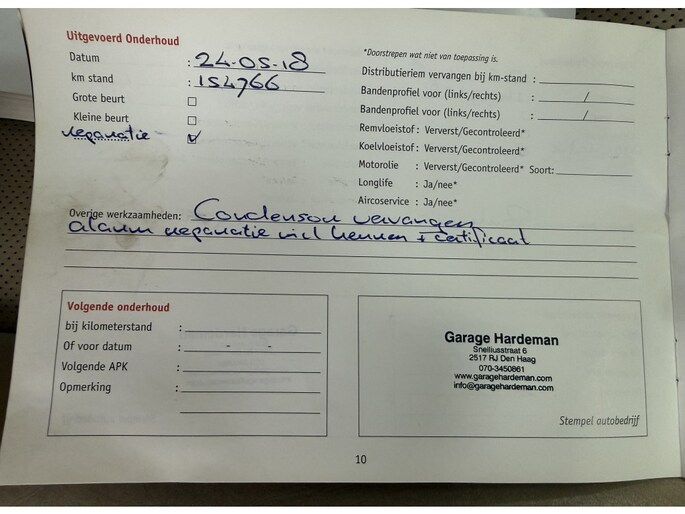 Uitgevoerd Onderhoud
Datum : 24-05-18
km stand : 154766
Grote beurt
Kleine beurt
reparatie
*Doorstrepen wat niet van toepassing is.
Distributieriem vervangen bij km-stand :
Bandenprofiel voor (links/rechts) : /
Bandenprofiel voor (links/rechts) : /
Remvloeistof : Ververst/Gecontroleerd*
Koelvloeistof : Ververst/Gecontroleerd*
Motorolie : Ververst/Gecontroleerd* Soort:
Longlife : Ja/nee*
Aircoservice : Ja/nee*
Overige werkzaamheden: Condensor vervangen
alarm reparatie incl keuren + certificaat
Volgende onderhoud
bij kilometerstand :
Of voor datum : - -
Volgende APK :
Opmerking :
Garage Hardeman
Snelliusstraat 6
2517 RJ Den Haag
070-3450861
www.garagehardeman.com
info@garagehardeman.com
Stempel autobedrijf
10